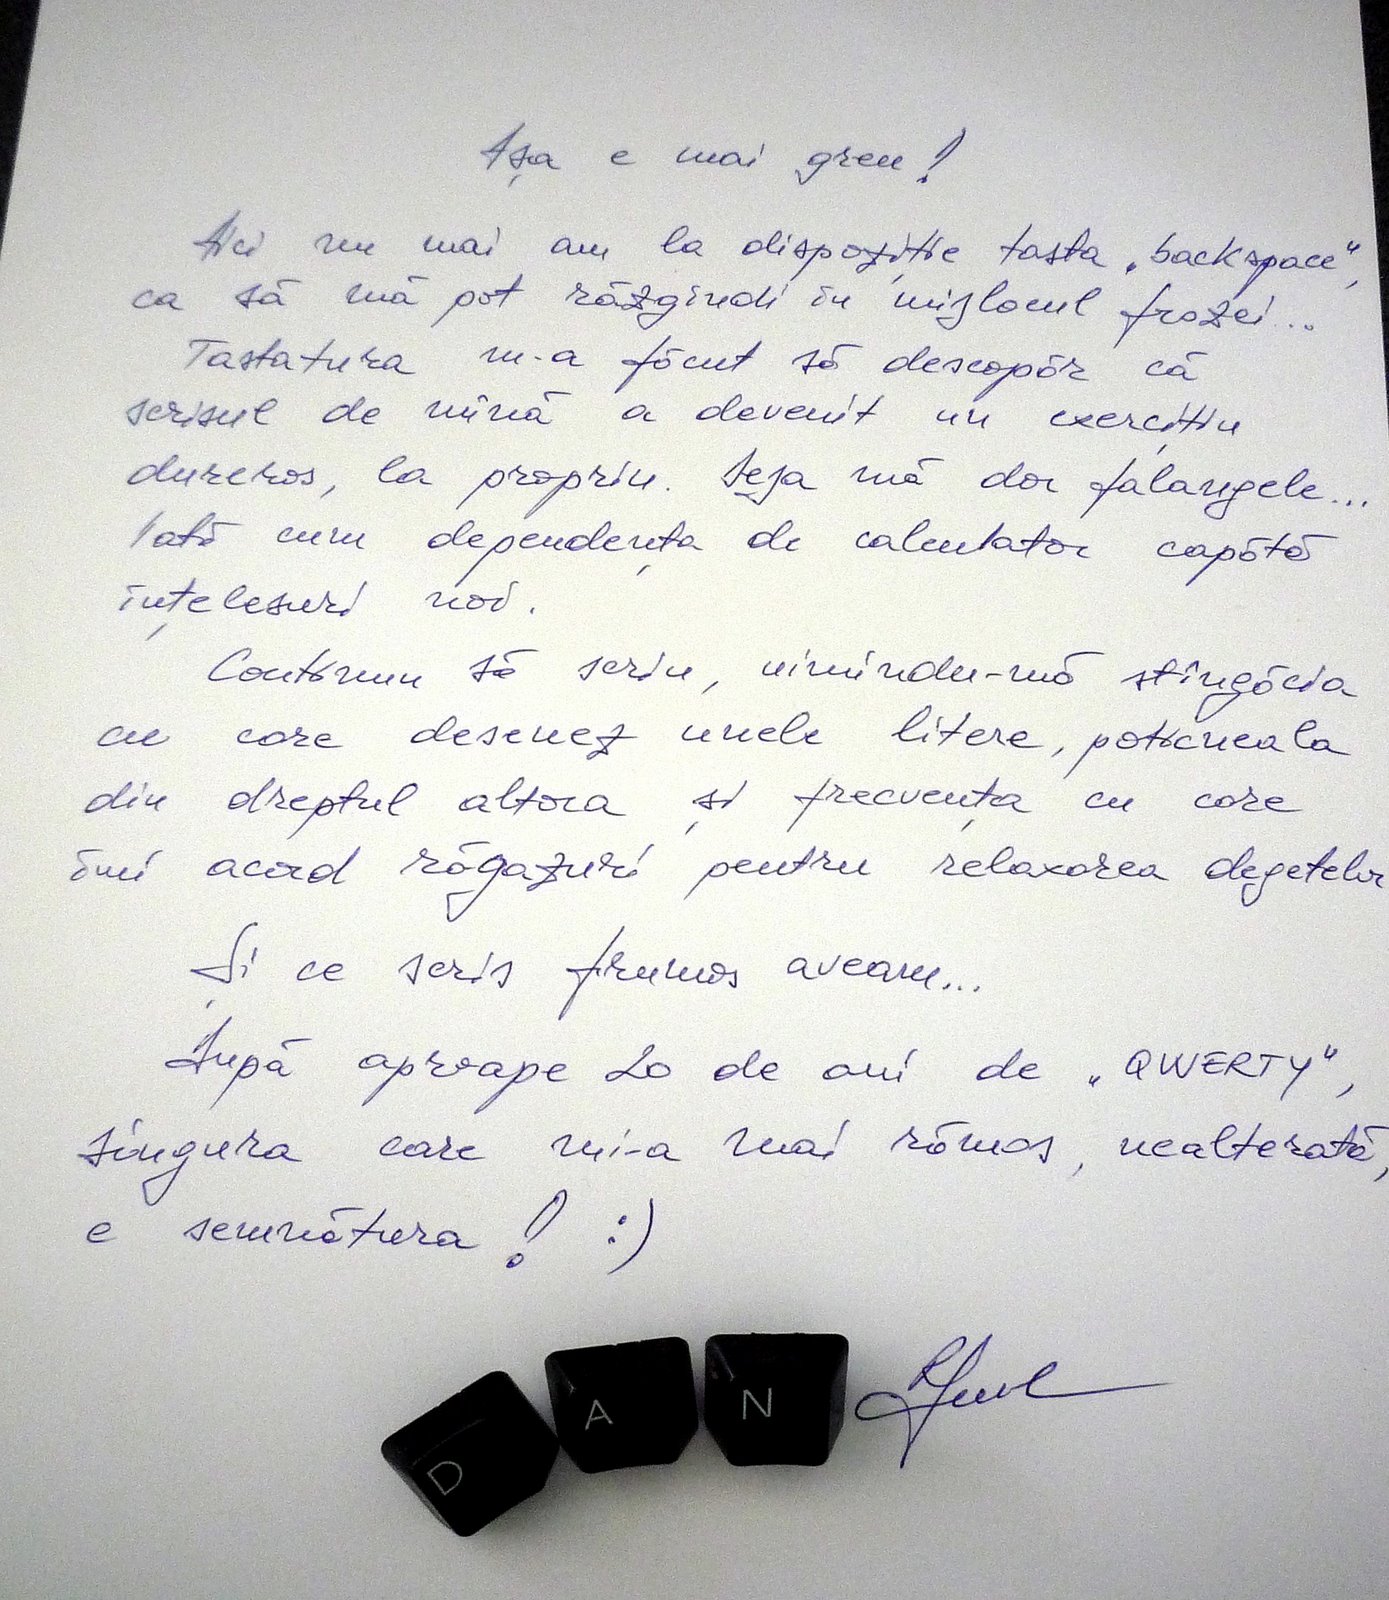 Așa e mai greu!
Aici nu mai am la dispoziție tasta „backspace”,
ca să mă pot răzgîndi în mijlocul frazei...
Tastatura m-a făcut să descopăr că
scrisul de mînă a devenit un exercițiu
dureros, la propriu. Deja mă dor falangele...
Iată cum dependența de calculator capătă
înțelesuri noi.
Continuu să scriu, uimindu-mă stîngăcia
cu care desenez unele litere, poticneala
din dreptul altora și frecvența cu care
îmi acord răgazuri pentru relaxarea degetelor
Și ce scris frumos aveam...
După aproape 20 de ani de „QWERTY”,
singura care mi-a mai rămas, nealterată,
e semnătura! :)
D A N